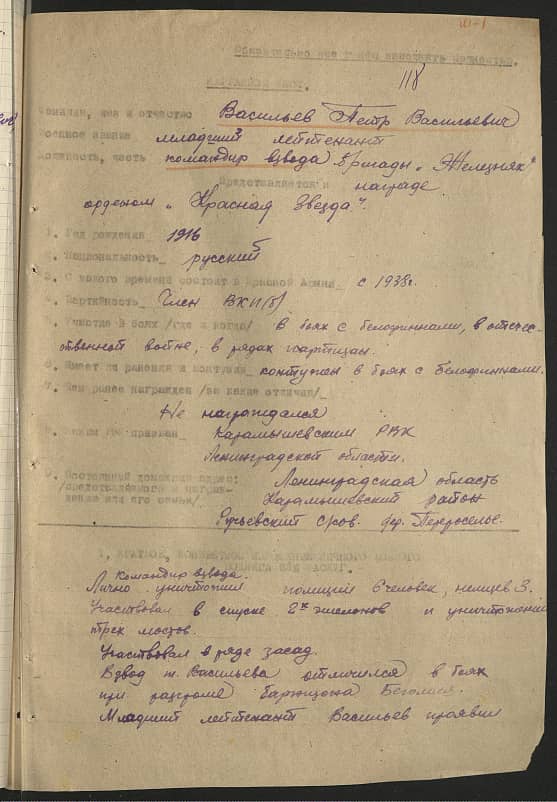 118
НАГРАДНОЙ ЛИСТ.
Фамилия, имя и отчество Васильев Петр Васильевич
Военное звание младший лейтенант
Должность, часть командир взвода бригады „Железняк"
Представляется к награде
орденом „Красная Звезда".
1. Год рождения 1916
2. Национальность русский
3. С какого времени состоит в Красной Армии с 1938г.
4. Партийность Член ВКП(б)
5. Участие в боях /где и когда/ В боях с белофиннами, в отечес-
ственной войне, в рядах партизан.
6. Имеет ли ранения и контузии контужен в боях с Белофиннами.
7. Чем ранее награжден /за какие отличия/
Не награждался
8. Каким РВК призван Карамышевским РВК
Ленинградской области.
9. Постоянный домашний адрес: Ленинградская область
/представляемого к награж- Карамышевский район
дению или его семьи/
с/сов. дер.
1. КРАТКОЕ, КОНКРЕТНОЕ ИЗЛОЖЕНИЕ ЛИЧНОГО БОЕВОГО
ПОДВИГА ИЛИ ЗАСЛУГ.
Командир взвода.
Лично уничтожил полицей 6 человек, немцев 3.
Участвовал в спуске 2х эшелонов и уничтожении
трех мостов.
Участвовал в ряде засад.
Взвод т. Васильева отличился в боях
при разгроме гарнизона Бегомля.
Младший лейтенант Васильев проявил